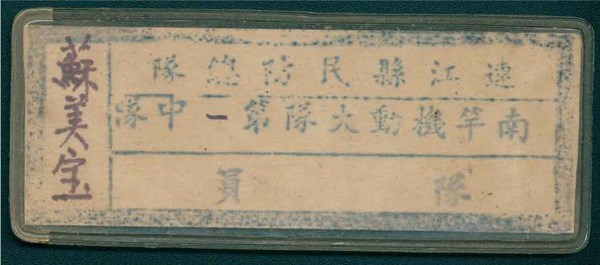 連江縣民防總隊
南竿機動大隊第一中隊
隊員
蘇美宝